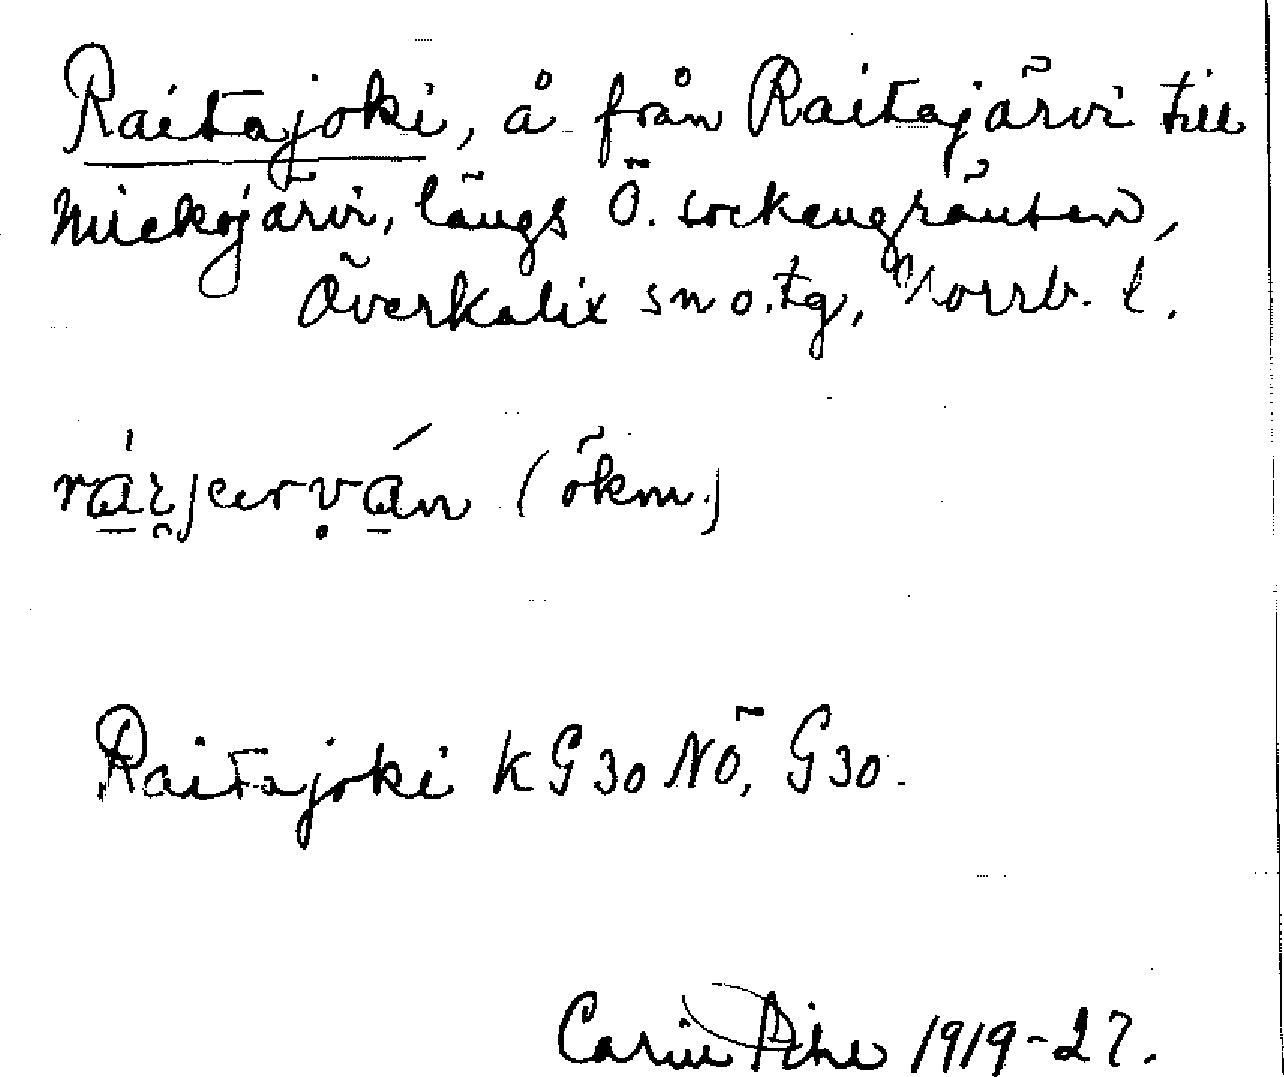 Raitajoki, å från Raitajärvi till
Mickojärvi, längs Ö. sockengränsen,
Överkalix sn o. tg, Norrb. l.
(ökm.)
Raitajoki K G30 NÖ, G30.
Carin Pihl 1919-27.